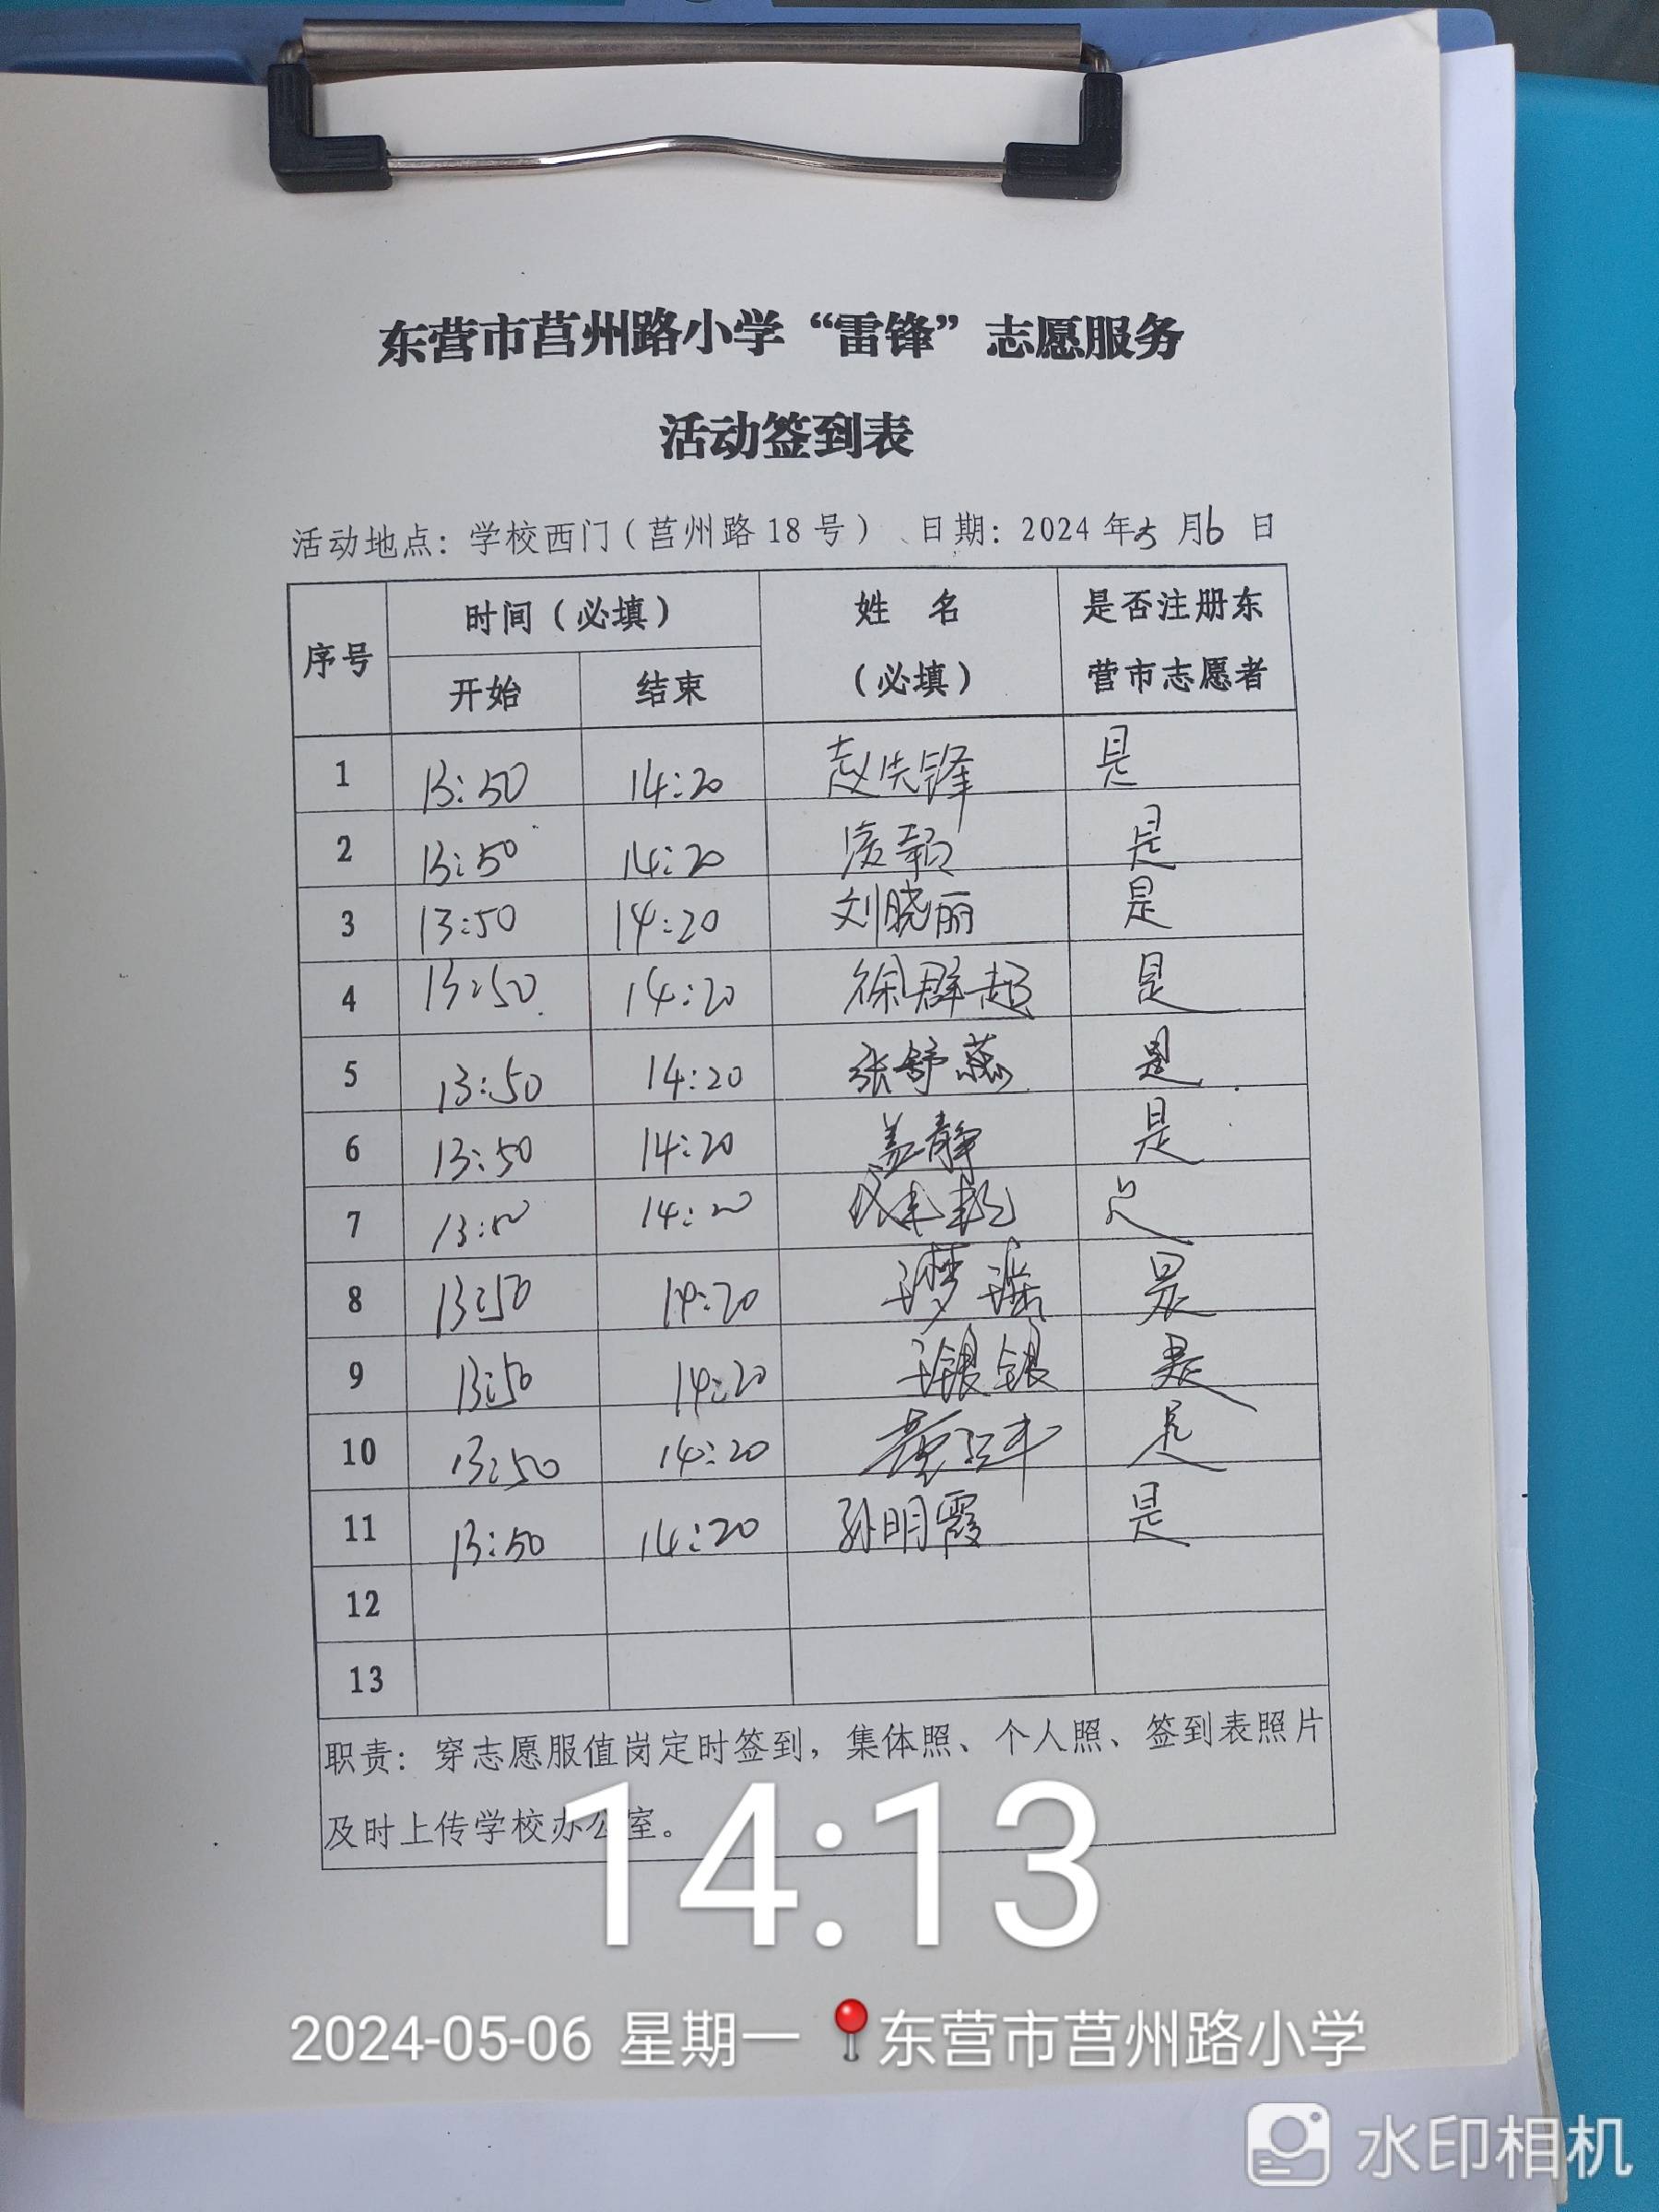 东营市莒州路小学“雷锋”志愿服务
活动签到表
活动地点：学校西门（莒州路18号）、日期：2024年5月6日
序号 时间（必填） 姓 名 是否注册东
开始 结束 （必填） 营市志愿者
1 13:50 14:20 赵先锋 是
2 13:50 14:20 是
3 13:50 14:20 刘晓丽 是
4 13:50 14:20 徐群超 是
5 13:50 14:20 张舒燕 是
6 13:50 14:20 盖静 是
7 13:50 14:20 是
8 13:50 14:20 王梦瑶 是
9 13:50 14:20 王银银 是
10 13:50 14:20 是
11 13:50 14:20 孙明霞 是
12
13
职责：穿志愿服值岗定时签到，集体照、个人照、签到表照片
及时上传学校办公室。
14:13
2024-05-06 星期一 东营市莒州路小学
水印相机